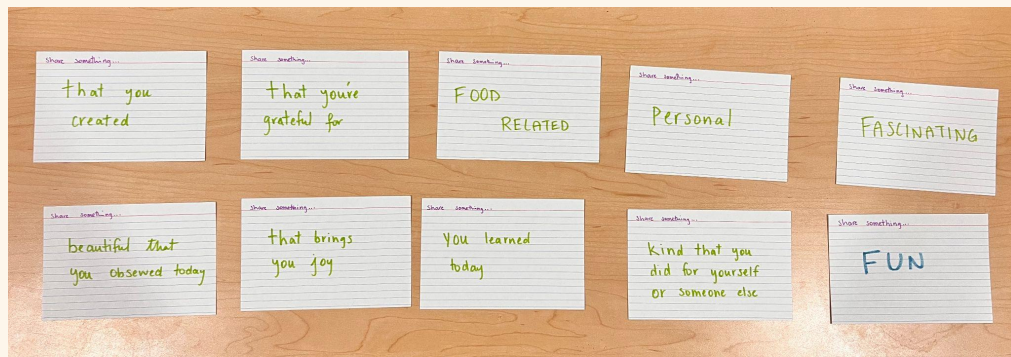 Share something...
that you
created
Share something...
that you're
grateful for
Share something...
FOOD
RELATED
Share something...
Personal
Share something...
FASCINATING
Share something...
beautiful that
you observed today
Share something...
that brings
you joy
Share something...
you learned
today
Share something...
Kind that you
did for yourself
or someone else
Share something...
FUN